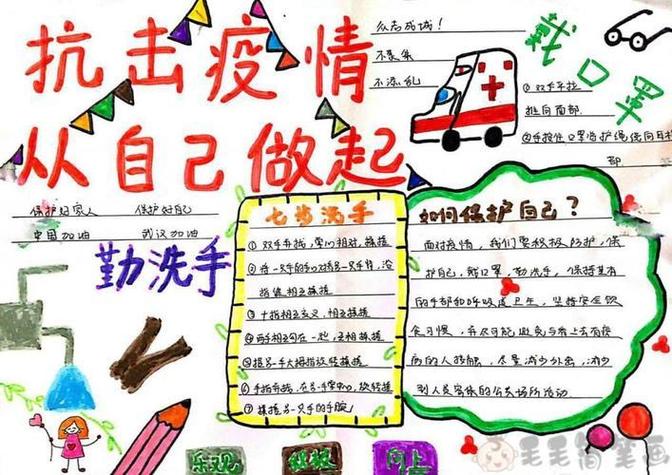 抗击疫情
从自己做起
众志成城!
不聚集
不添乱
戴口罩
①双手平拉
推向面部
保护好家人 保护好自己
中国加油 武汉加油
勤洗手
七步洗手
①双手并拢,掌心相对,揉搓
②将一只手的手心对另一只手背,沿
指缝相互揉搓
③十指相互交叉,相互揉搓
④两手相互勾在一起,互相揉搓
⑤握另一手大拇指旋转揉搓
⑥手指并拢,在另一手掌心,旋转揉搓
⑦揉搓另一只手的手腕
如何保护自己?
面对疫情,我们要积极防护,保
护自己,戴口罩,勤洗手,保持
的手部和呼吸道卫生,坚持安全饮
食习惯,并尽可能避免与患上
病的人接触,尽量减少外出,减少
到人员密集的公共场所活动.
乐观
积极
向上
毛毛简笔画